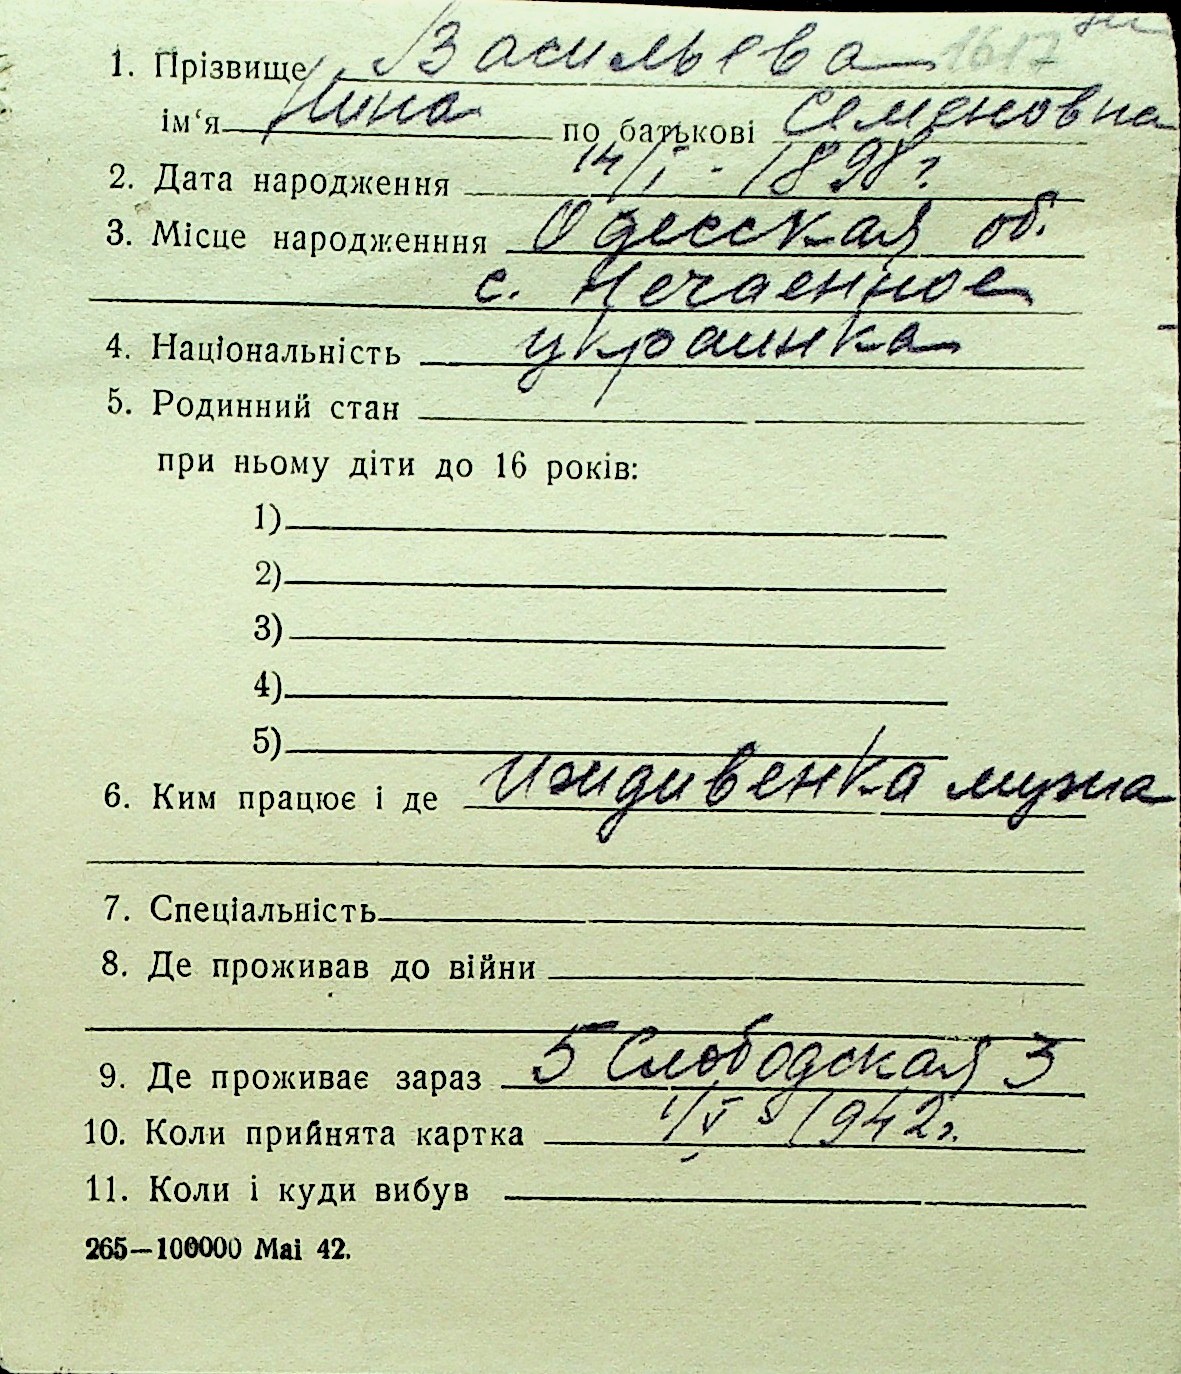 1. Прізвище Васильева 1617
ім‘я Нина по батькові Семеновна
2. Дата народження 14/I - 1898 г
3. Місце народженння Одесская об.
с. Нечаенное
4. Національність украинка
5. Родинний стан
при ньому діти до 16 років:
1)
2)
3)
4)
5)
6. Ким працює і де иждивенка мужа
7. Спеціальність
8. Де проживав до війни
9. Де проживає зараз 5 Слободская 3
10. Коли прийнята картка 1/V 1942г.
11. Коли і куди вибув
265—100000 Mai 42.